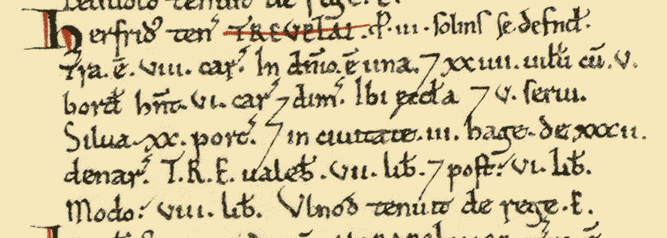 tenuit de rege. E.
Herfrid̛ ten̛ TREVELAI. ꝑ. iii. solins se defnd̛.
Tra. ē. viii. car̛. In dn̄io. ē una. ⁊ xxiiii uilli cū. v.
bord̛ hn̄t. vi. car̛ ⁊ dim̛. Ibi æccla ⁊ v. serui.
Silua. xx. porc̛. ⁊ in ciuitate. iii. hagæ. de xxxii.
denar̛. T.R.E. ualeb̛. vii. lib̛. ⁊ post̛. vi. lib̛.
Modo: viii. lib̛. Vlnod tenuit de rege. E.